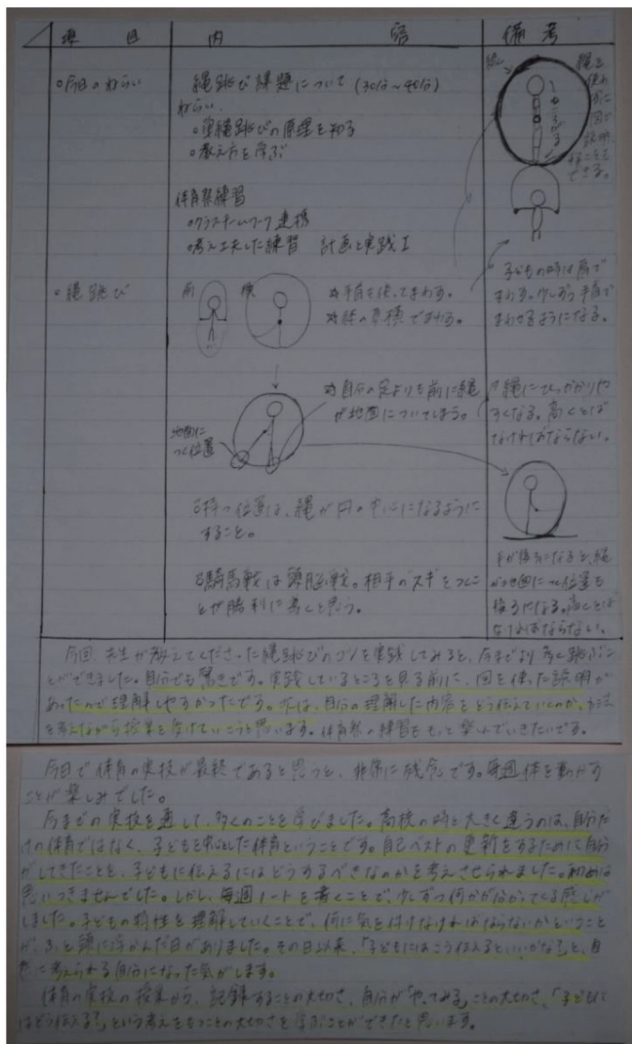 項 目
内 容
備 考
今日のねらい
縄跳び課題について (30分〜40分)
ねらい
縄跳びの原理を知る
教え方を学ぶ
体育祭練習
クラスチームワーク 連携
考え工夫した練習 計画と実践 I
縄跳び
前 横
手首を使ってまわす。
子どもの時は肩で
まわす。少しずつ手首で
まわせるようになる。
自分の足よりも前に縄
が地面についてしまう。
縄にひっかかりや
すくなる。高くとば
なければならない。
地面に
つく位置
持つ位置は、縄が円の中心になるように
すること。
手が後ろになると、縄
がつく位置も
後ろになる。高くとば
なければならない。
騎馬戦は頭脳戦。相手のスキをつくこ
とが勝利に導くと思う。
今回、先生が教えてくださった縄跳びのコツを実践してみると、今までより多く跳ぶこ
とができました。自分でも驚きです。実践しているところを見る前に、図を使った説明が
あったので理解しやすかったです。次は、自分の理解した内容をどう伝えていくのか、方法
を考えながら授業を受けていこうと思います。体育祭の練習をもっと楽しんでいきたいです。
今日で体育の実技が最終であると思うと、非常に残念です。毎週体を動かす
ことが楽しみでした。
今までの実技を通して、多くのことを学びました。高校の時と大きく違うのは、自分だ
けの体育ではなく、子どもを中心とした体育ということです。自己ベストの更新をするために自分
がしてきたことを、子どもに伝えるにはどうするべきなのかを考えさせられました。初めは
思いつきませんでした。しかし、毎週ノートを書くことで、少しずつ何かが分かってくる感じが
しました。子どもの特性を理解していくことで、何に気を付けなければならないかということ
が、ふと頭に浮かんだ日がありました。その日以来、「子どもにはこう伝えるといいかな」と、自
然に考えられる自分になった気がします。
体育の実技の授業から、記録することの大切さ、自分が「やってみる」ことの大切さ、「子どもに
はどう伝える?」という考えをもつことの大切さを学ぶことができたと思います。